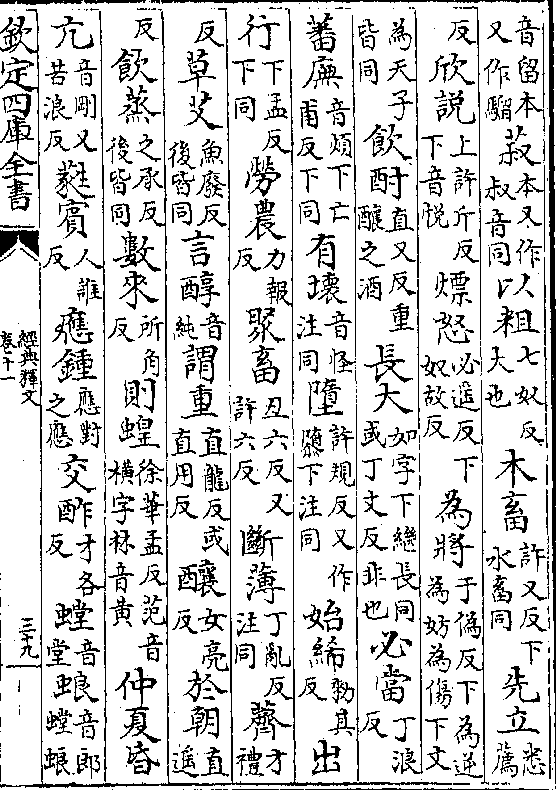 音留本又作騮菽本又作叔音同以粗七奴反大也木畜許又反下水畜同先立悉薦
反欣說上許斤反下音悅熛怒必遥反下奴故反為將于偽反下為逆為妨為傷下文
為天子皆同飲酎直又反重釀之酒長大如字下繼長同或丁丈反非也必當丁浪反
蕃廡音煩下亡甫反下同有壊音怪注同墮許規反又作隳下注同始絺勑其反出
行下孟反下同勞農力報反聚畜丑六反又許六反斷薄丁亂反注同薺才禮
反草艾魚廢反後皆同言醇音純謂重直龍反或直用反釀女亮反於朝直遥
反飲蒸之承反後皆同數來所角反則蝗徐華孟反范音横字林音黄仲夏昏
亢音剛又苦浪反蕤賓人誰反應鍾應對之應交酢才各反螳音堂蜋音郎螳蜋
欽定四庫全書
經典釋文
卷十一
三十九